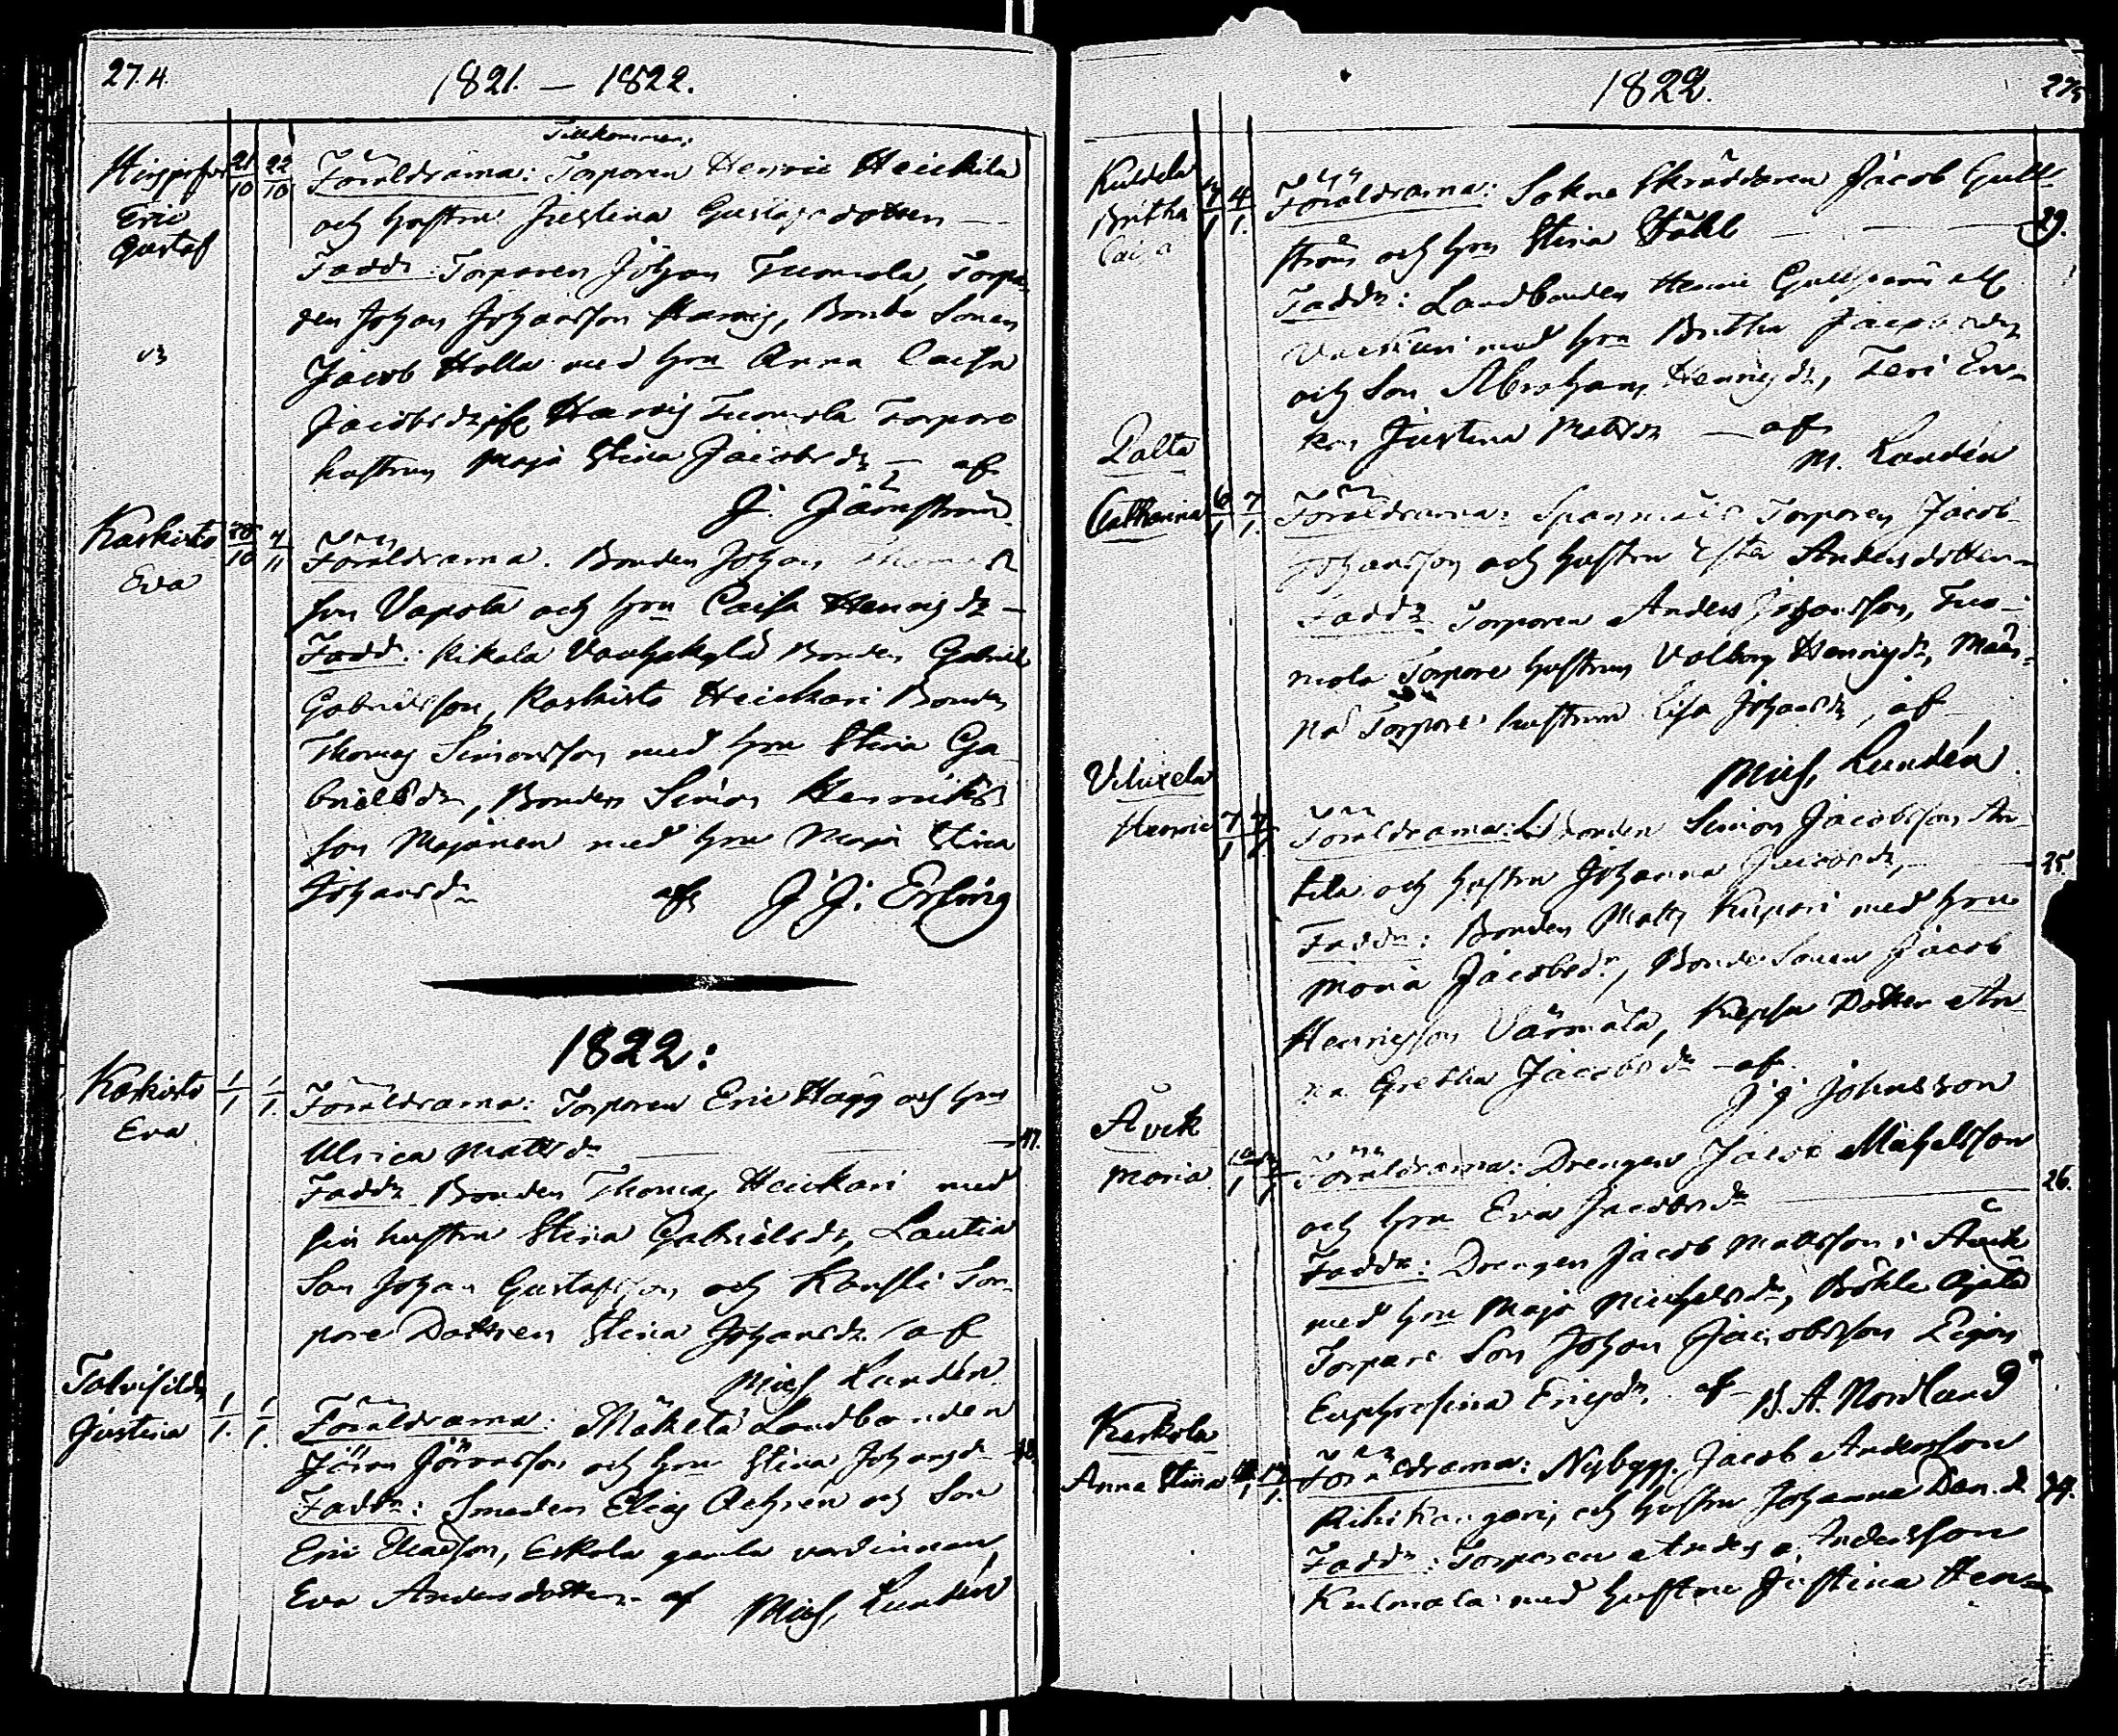 274.
1821. — 1822.
Tillkommer:
Eric
Gustaf
21/10 22/10
Föräldrarna: Torparen Henric Heickila
och hustru Justina Gustafsdotter —
Fadd: Torparen Johan Tuomola, Torpa
ren Johan Johansson Harvig, Bonde Sonen
Jacob Holla med hru Anna Caisa
Jacobsdr, Harvig Tuomola Torpare
hustrun Maja Stina Jacobsdr — af
J. Jämström
Karkisto
Eva
28/10 4/11
Föräldrarna. Bonden Johan
son Vapola och hru Caisa Henrigdr —
Fadd: Kikala Vanhakylä Bonden Gabriel
Gabrielsson, Karkisto Heickari Bonden
Thomas Simonsson med hru Stina Ga
brielsdr, Bonden Simon Henriks
son Majanen med hru Maja Stina
Johansdr af J. J. Erling
1822:
Karkisto
Eva
1/1 1/1.
Föräldrarna: Torparen Eric Hägg och hru
Ulrica Mattsdr — 47.
Faddr Bonden Thomas Heickari med
sin hustru Stina Gabrielsdr, Lautia
Son Johan Gustafsson och Kanssi Tor-
pare Dottren Stina Johansdr / af
Mich. Lundén.
Talvisilda
Justina
1/1. 1/1.
Föräldrarna: Mäkelä Landbonden
Jöran Jöransson och hru Stina Johansdr
Faddr: Smeden Elias Achrén och Son
Eric Eliasson, Eskola gamla värdinnan
Eva Andersdotter af Mich. Lundén
1822.
275
Kuldela
Britha
Caisa
4/1.
Föräldrarna: Sokne Skräddaren Jacob Gull-
ström och hru Stina Ståhl — 29.
Faddr: Landbonden Henric Gullström
med hru Britha Jacobsdr
och Son Abraham Henrigdr, Teri En-
kan Justina Matsdr — af
M. Lundén
Palta
Catharina
6/1 7/1.
Föräldrarna: Torparen Jacob
Johansson och hustru Ester Andersdotter —
Faddr Torparen Anders Johansson, Tuo-
mola Torpare hustrun Valborg Henrigdr, Män-
nå Torpare hustrun Lisa Johansdr, af
Mich. Lundén.
Viluxela
Henric
7/1 7/1.
Föräldrarna: L.bonden Simon Jacobsson An-
tila och hustru Johanna Jacobsdr, — 25.
Faddr: Bonden Matts Kuppari med hru
Maria Jacobsdr, Bonde Sonen Jacob
Henrigsson Värmälä, Dotter An
na Gretha Jacobsdr — af
J. J. Johnsson
Åvik
Maria
Föräldrarna: Drengen Jacob Michelsson
och hru Eva Jacobsdr — 26.
Faddr: Drengen Jacob Mattsson i Åvik
med hru Maja Michelsdr, Pöhlö Ojala
Torpare Son Johan Jacobsson Pigan
Euphrosina Ericsdr. af B. A. Nordlund
Keskola
Anna Stina
Föräldrarna: Nybygg. Jacob Andersson
Rihikangari, och hustru Johanna Dan.dr
Faddr: Torparen Anders Andersson
Kulmala med hustru Justina Hen-